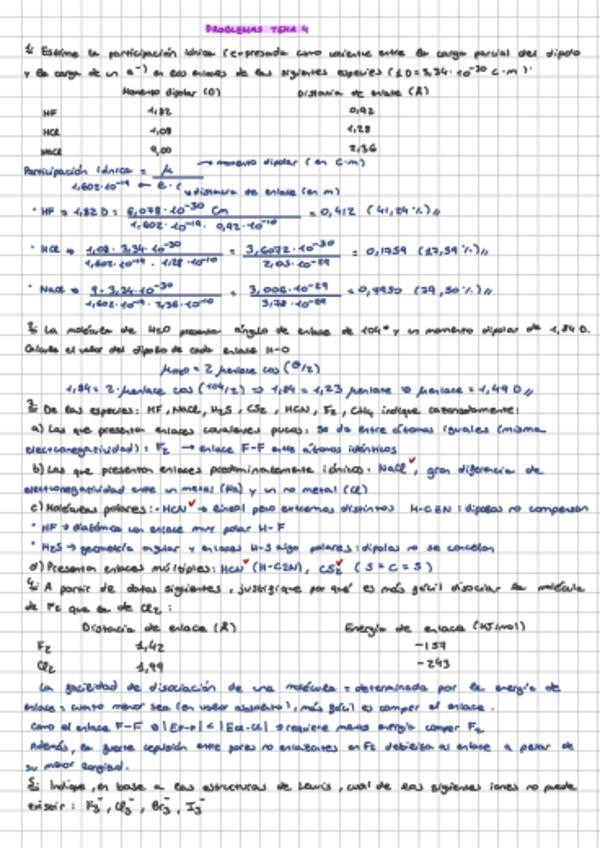 PROBLEMAS TEMA 4
1: Estime la participación iónica (expresada como cociente entre la carga parcial del dipolo
y la carga de un e⁻) en los enlaces de las siguientes especies (1D=3,34·10⁻³⁰ C·m).
Momento dipolar (D) Distancia de enlace (Å)
HF 1,82 0,92
HCl 1,08 1,28
NaCl 9,00 2,36
Participación iónica = μ → momento dipolar (en C·m)
1,602·10⁻¹⁹ ← e · r ↘ distancia de enlace (en m)
· HF → 1,82 D = 6,078·10⁻³⁰ Cm = 0,412 (41,24%)
1,602·10⁻¹⁹ · 0,92·10⁻¹⁰
· HCl → 1,08 · 3,34·10⁻³⁰ = 3,6072·10⁻³⁰ = 0,1759 (17,59%)
1,602·10⁻¹⁹ · 1,28·10⁻¹⁰ 2,05·10⁻²⁹
· NaCl → 9 · 3,34·10⁻³⁰ = 3,006·10⁻²⁹ = 0,7950 (79,50%)
1,602·10⁻¹⁹ · 2,36·10⁻¹⁰ 3,78·10⁻²⁹
2: La molécula de H₂O presenta ángulo de enlace de 104° y un momento dipolar de 1,84 D.
Calcule el valor del dipolo de cada enlace H-O
= 2 μenlace cos (θ/2)
1,84 = 2 · μenlace cos (104/2) ⇒ 1,84 = 1,23 μenlace ⇒ μenlace = 1,49 D
3: De las especies: HF, NaCl, H₂S, CS₂, HCN, F₂, CH₄ indique razonadamente:
a) Las que presentan enlaces covalentes puros: se da entre átomos iguales (misma
electronegatividad): F₂ → enlace F-F entre átomos idénticos
b) Las que presentan enlaces predominantemente iónicos: NaCl, gran diferencia de
electronegatividad entre un metal (Na) y un no metal (Cl)
c) Moléculas polares: · HCN → lineal pero extremos distintos H-C≡N: dipolos no compensan
· HF → diatómica con enlace muy polar H-F
· H₂S → geometría angular y enlaces H-S algo polares: dipolos no se cancelan
d) Presentan enlaces múltiples: HCN (H-C≡N), CS₂ (S=C=S)
4: A partir de datos siguientes, justifique por qué es más fácil disociar la molécula
de F₂ que la de Cl₂:
Distancia de enlace (Å) Energía de enlace (KJ/mol)
F₂ 1,42 -157
Cl₂ 1,99 -243
La facilidad de disociación de una molécula = determinada por la energía de
enlace = cuanto menor sea (en valor absoluto), más fácil es romper el enlace.
Como el enlace F-F → |EF-F| < |ECl-Cl| → requiere menos energía romper F₂
Además, la fuerte repulsión entre pares no enlazantes en F₂ debilita al enlace a pesar de
su menor longitud.
5: Indique, en base a las estructuras de Lewis, cual de los siguientes iones no puede
existir: F₃⁻, Cl₃⁻, Br₃⁻, I₃⁻